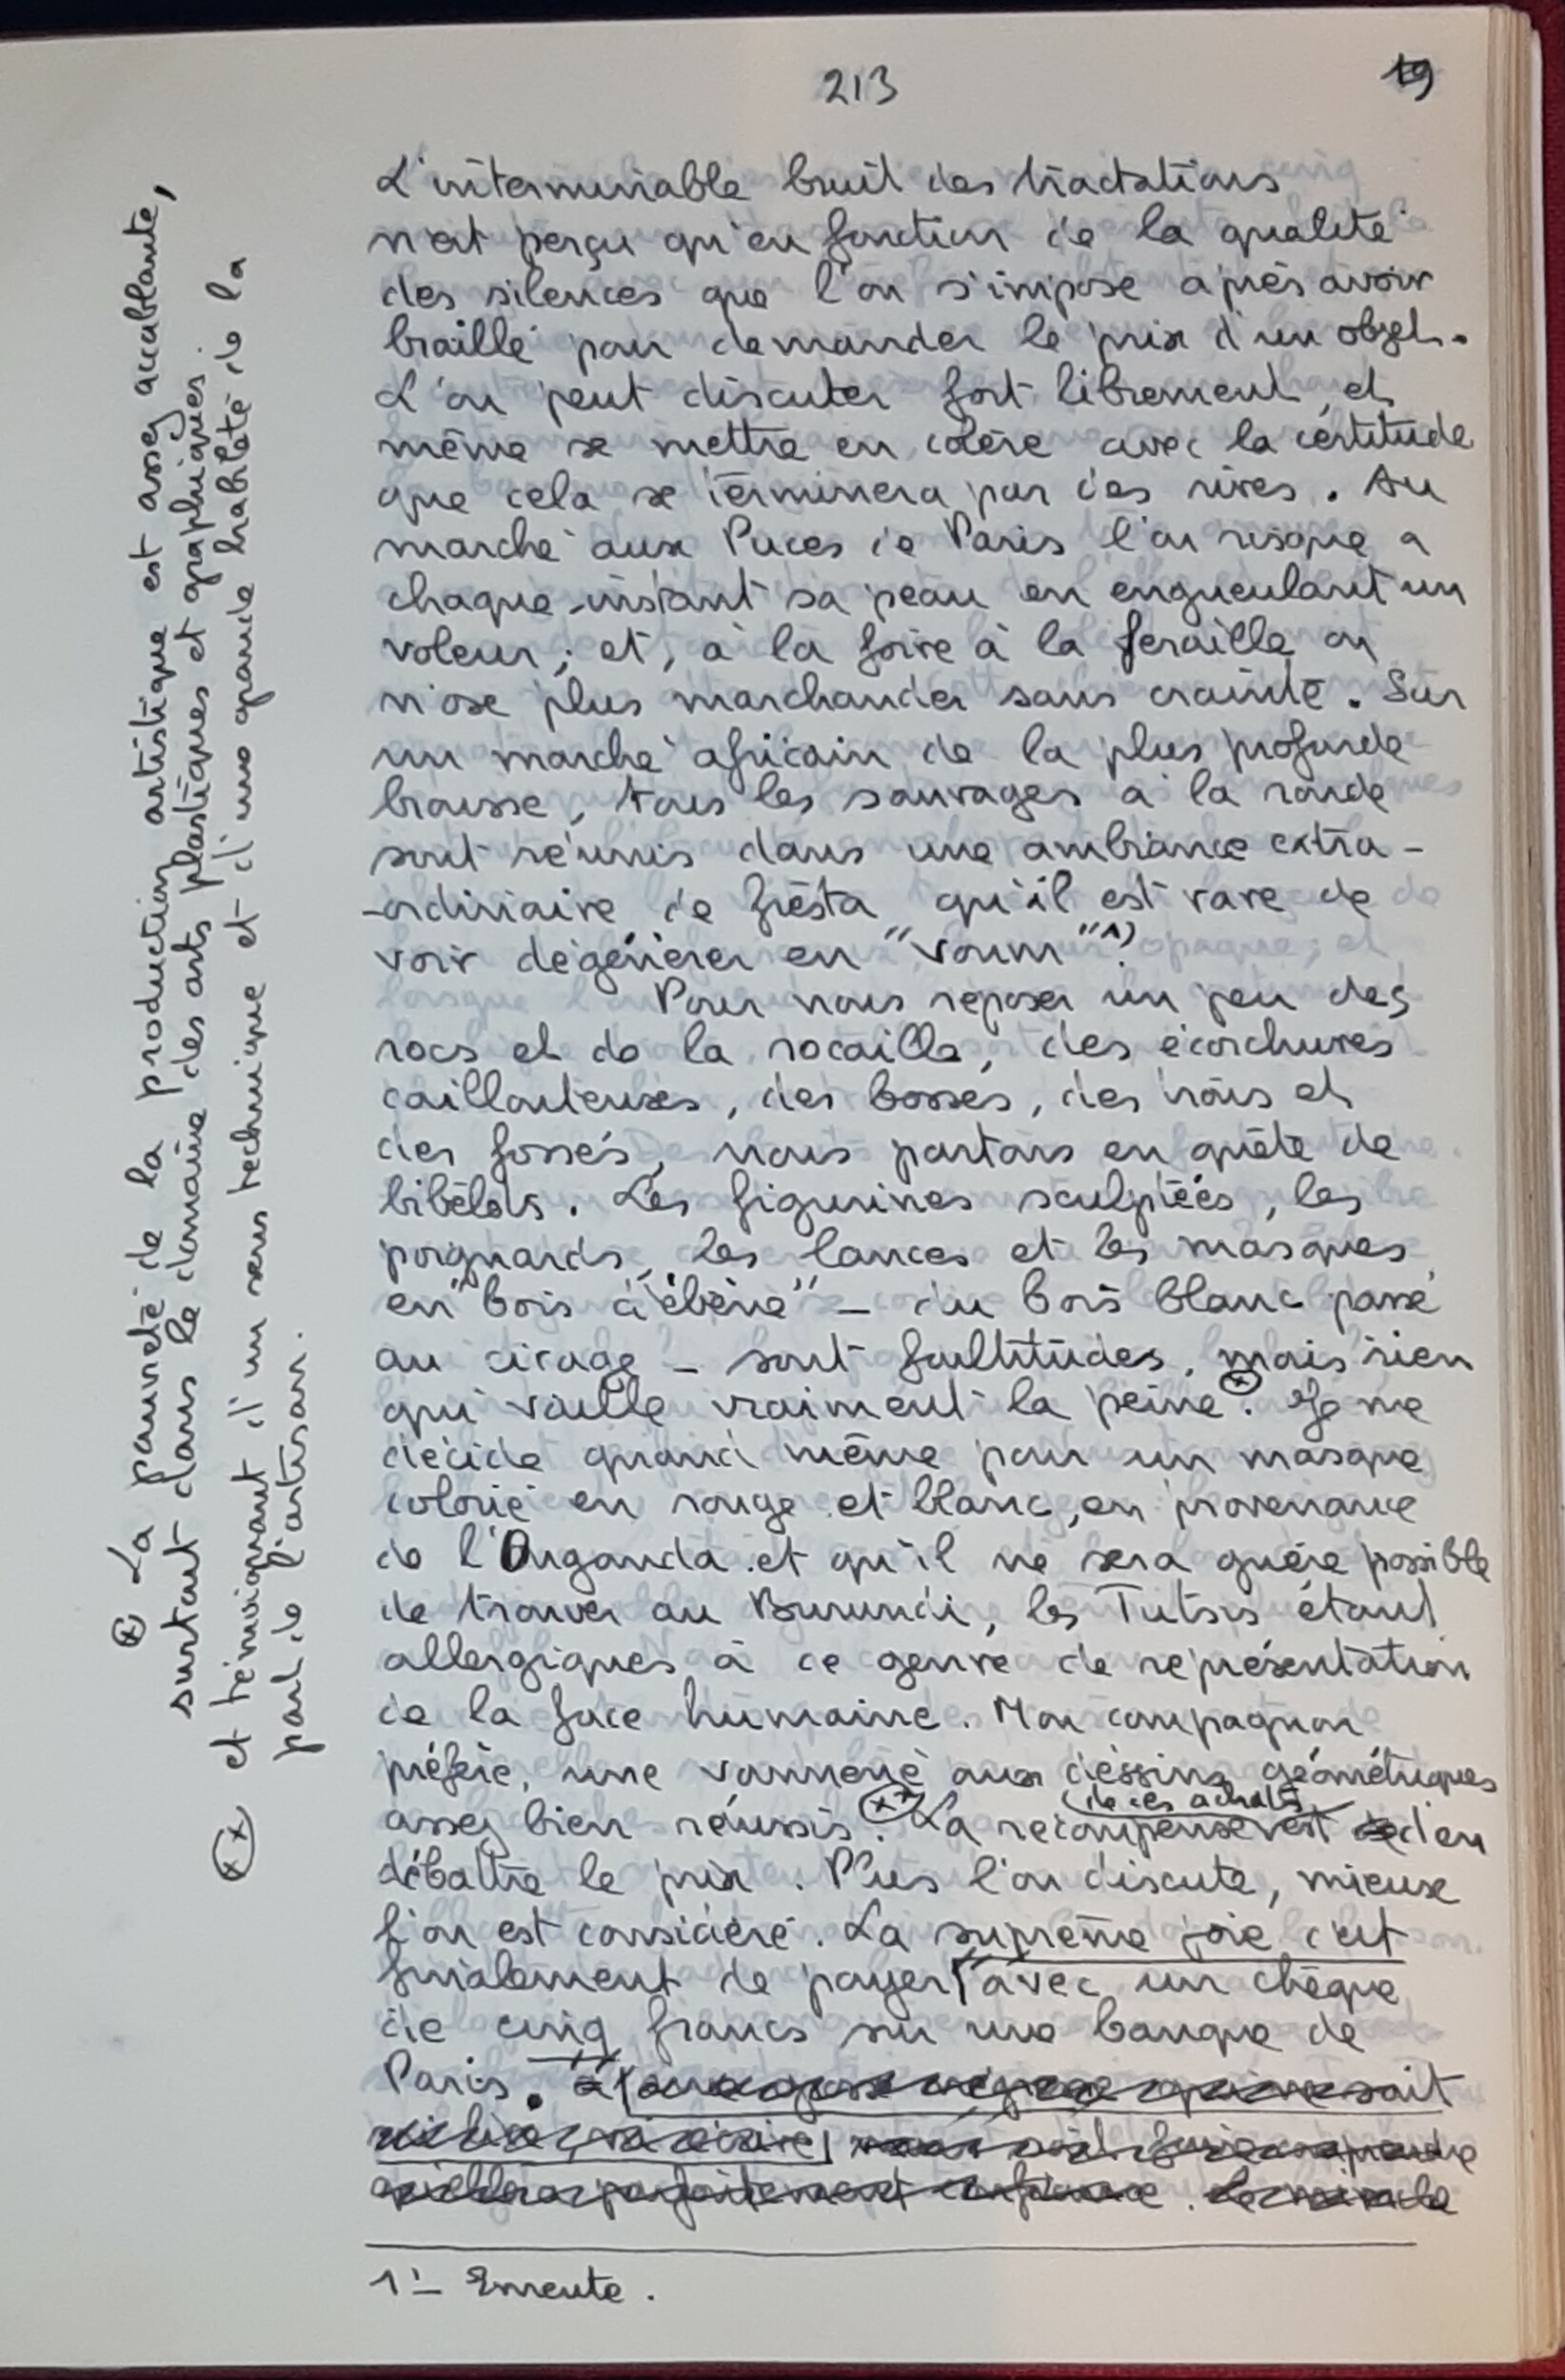 213
19
L'interminable bruit des tractations
n'est perçu qu'en fonction de la qualité
des silences que l'on s'impose après avoir
braillé pour demander le prix d'un objet.
L'on peut discuter fort librement, et
même se mettre en colère avec la certitude
que cela se terminera par des rires. Au
marché aux Puces de Paris l'on risque a
chaque instant sa peau en engueulant un
voleur; et, à la foire à la feraille on
n'ose plus marchander sans crainte. Sur
un marché africain de la plus profonde
brousse, tous les sauvages à la ronde
sont réunis dans une ambiance extra-
-ordinaire de fiesta qu'il est rare de
voir dégénérer en "voum" 1).
Pour nous reposer un peu des
rocs et de la rocaille, des écorchures
caillouteuses, des bosses, des trous et
des fossés, nous partons en quête de
bibelots. Les figurines sculptées, les
poignards, les lances et les masques
en "bois d'ébène" - du bois blanc passé
au cirage - sont foultitudes, mais rien
qui vaille vraiment la peine (x). Je me
décide quand même pour un masque
colorié en rouge et blanc, en provenance
de l'Ouganda et qu'il ne sera guère possible
de trouver au Burundi, les Tutsis étant
allergiques à ce genre de représentation
de la face humaine. Mon compagnon
préfère, une vannerie aux dessins géométriques
assez bien réussis (xx). La récompense de ces achats est d'en
débattre le prix. Plus l'on discute, mieux
l'on est considéré. La suprême joie c'est
finalement de payer "avec un chèque
de cinq francs sur une banque de
Paris".
1 - Emeute.
(x) La pauvreté de la production artistique est assez accablante,
surtout dans le domaine des arts plastiques et graphiques.
(xx) et témoignant d'un sens technique et d'une grande habileté de la
part de l'artisan.